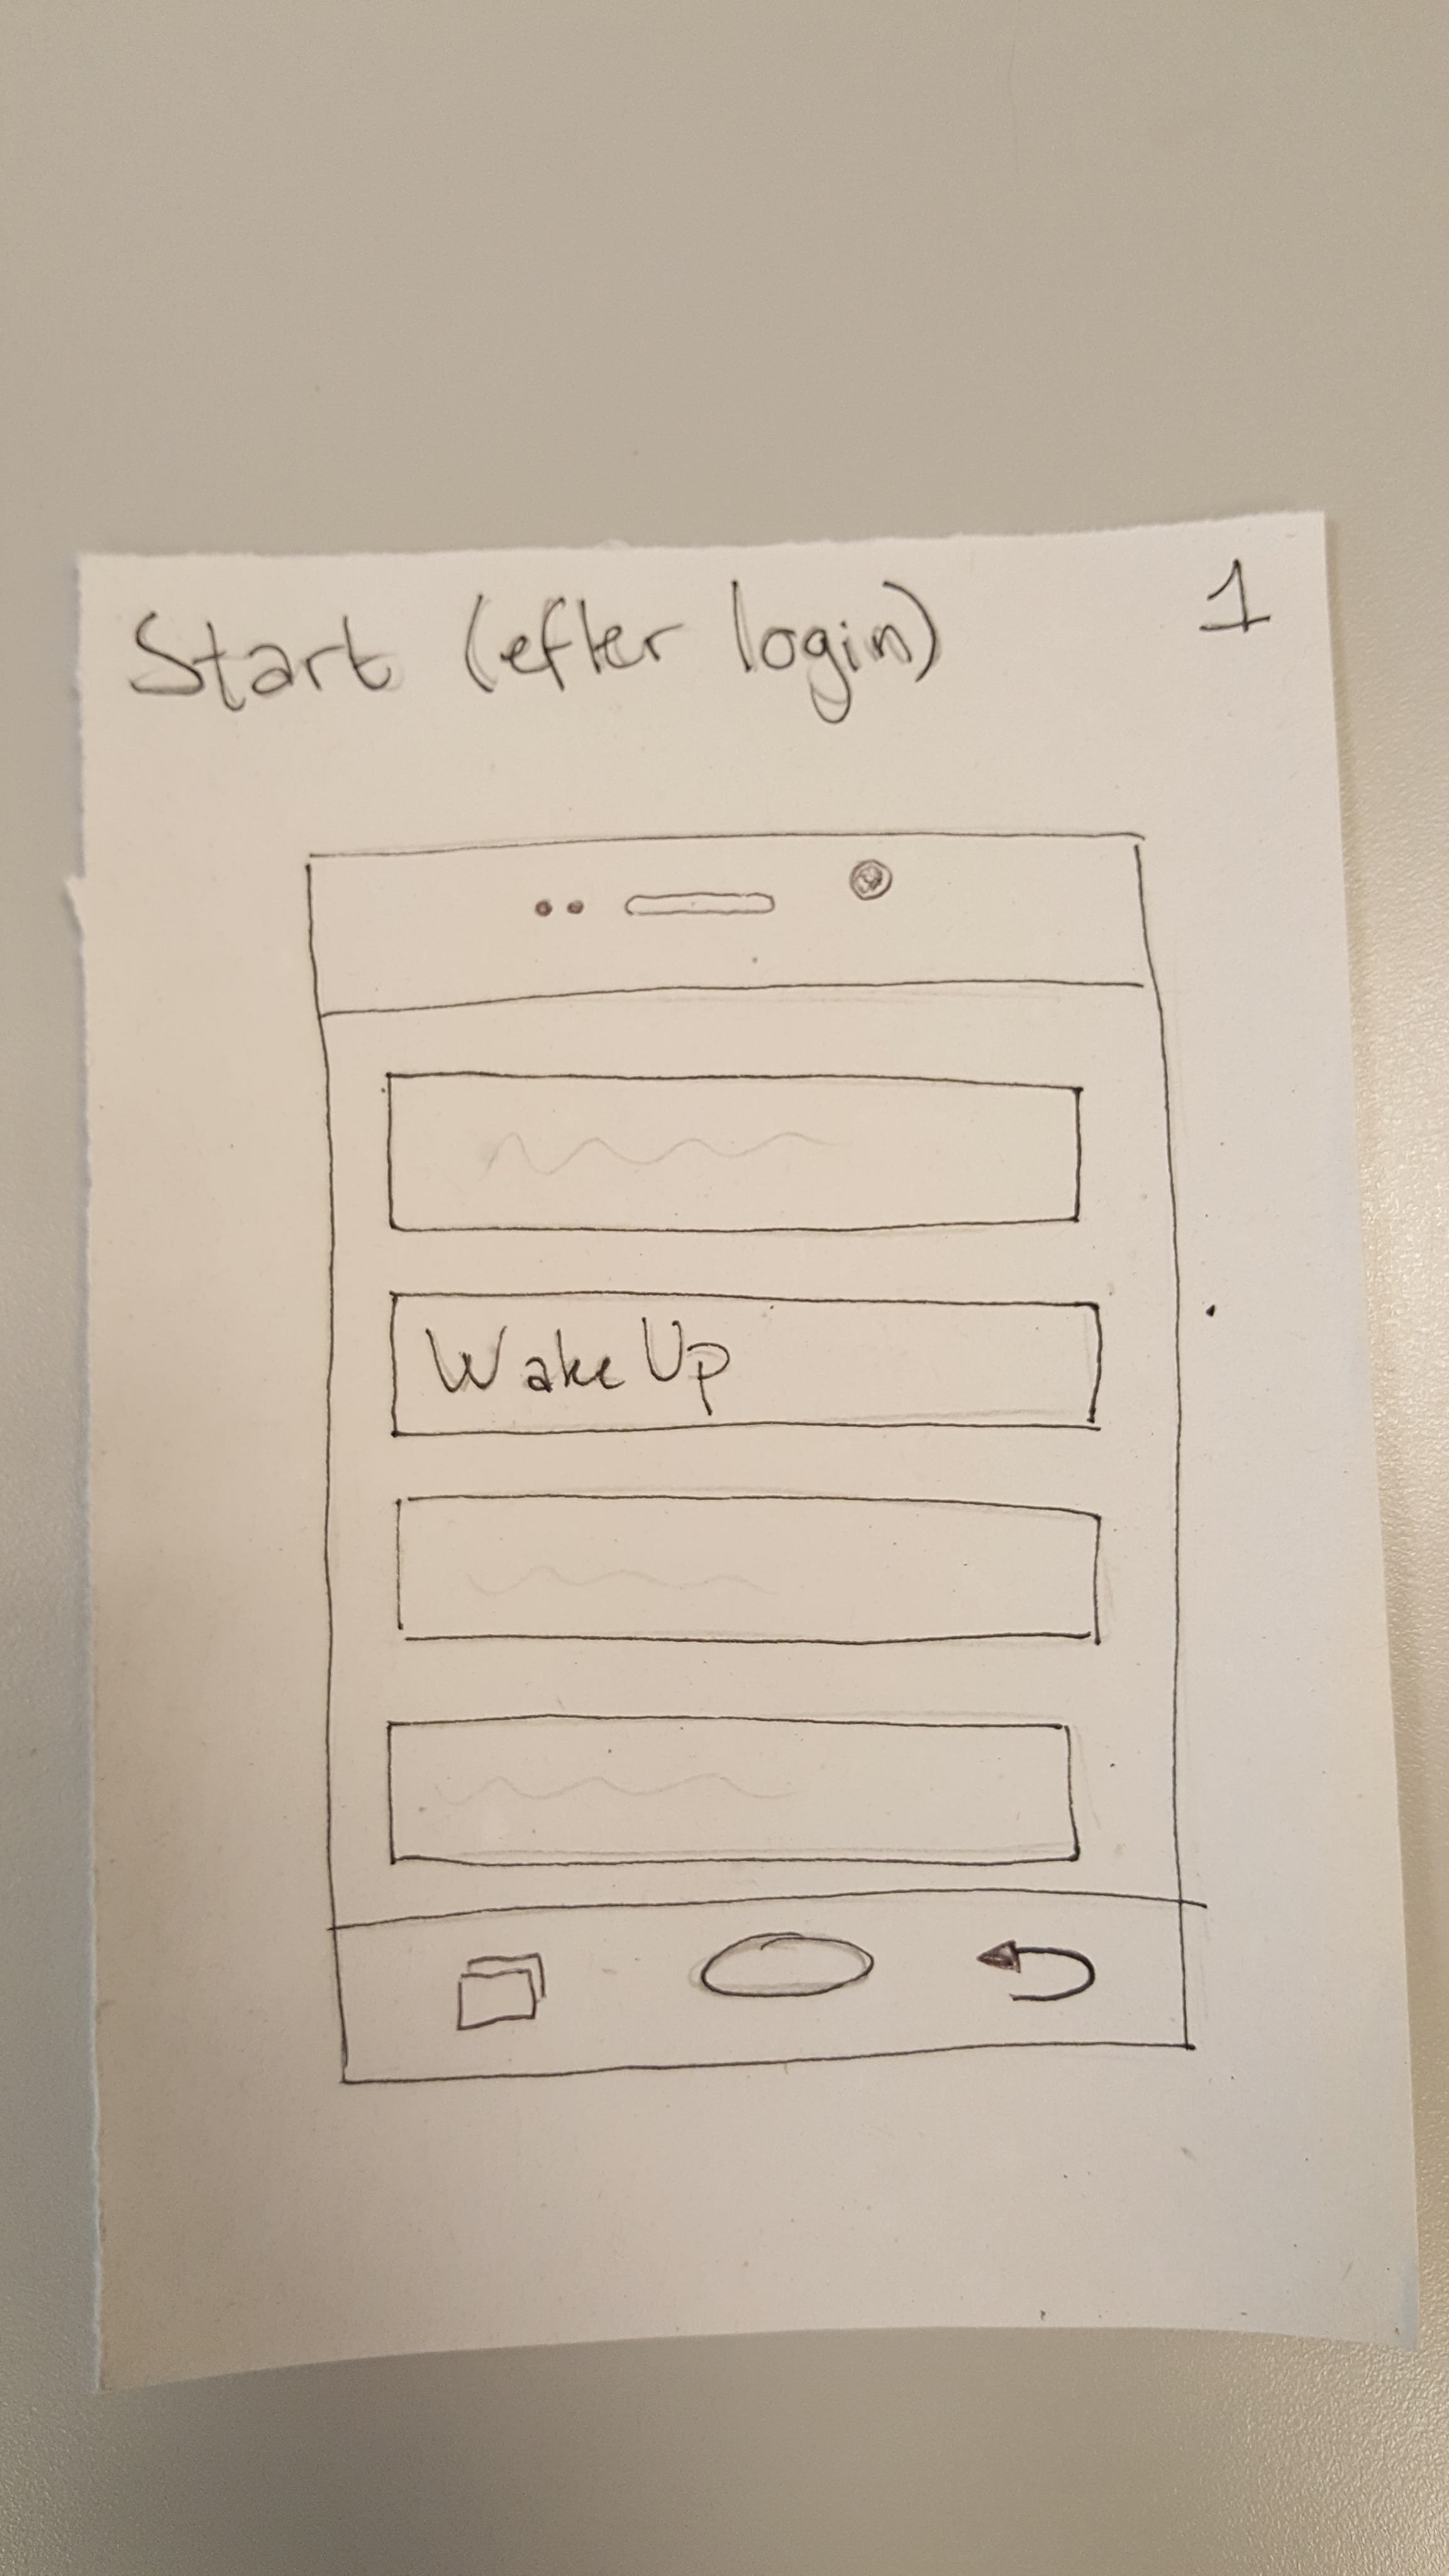 Start (efter login)
1
Wake Up